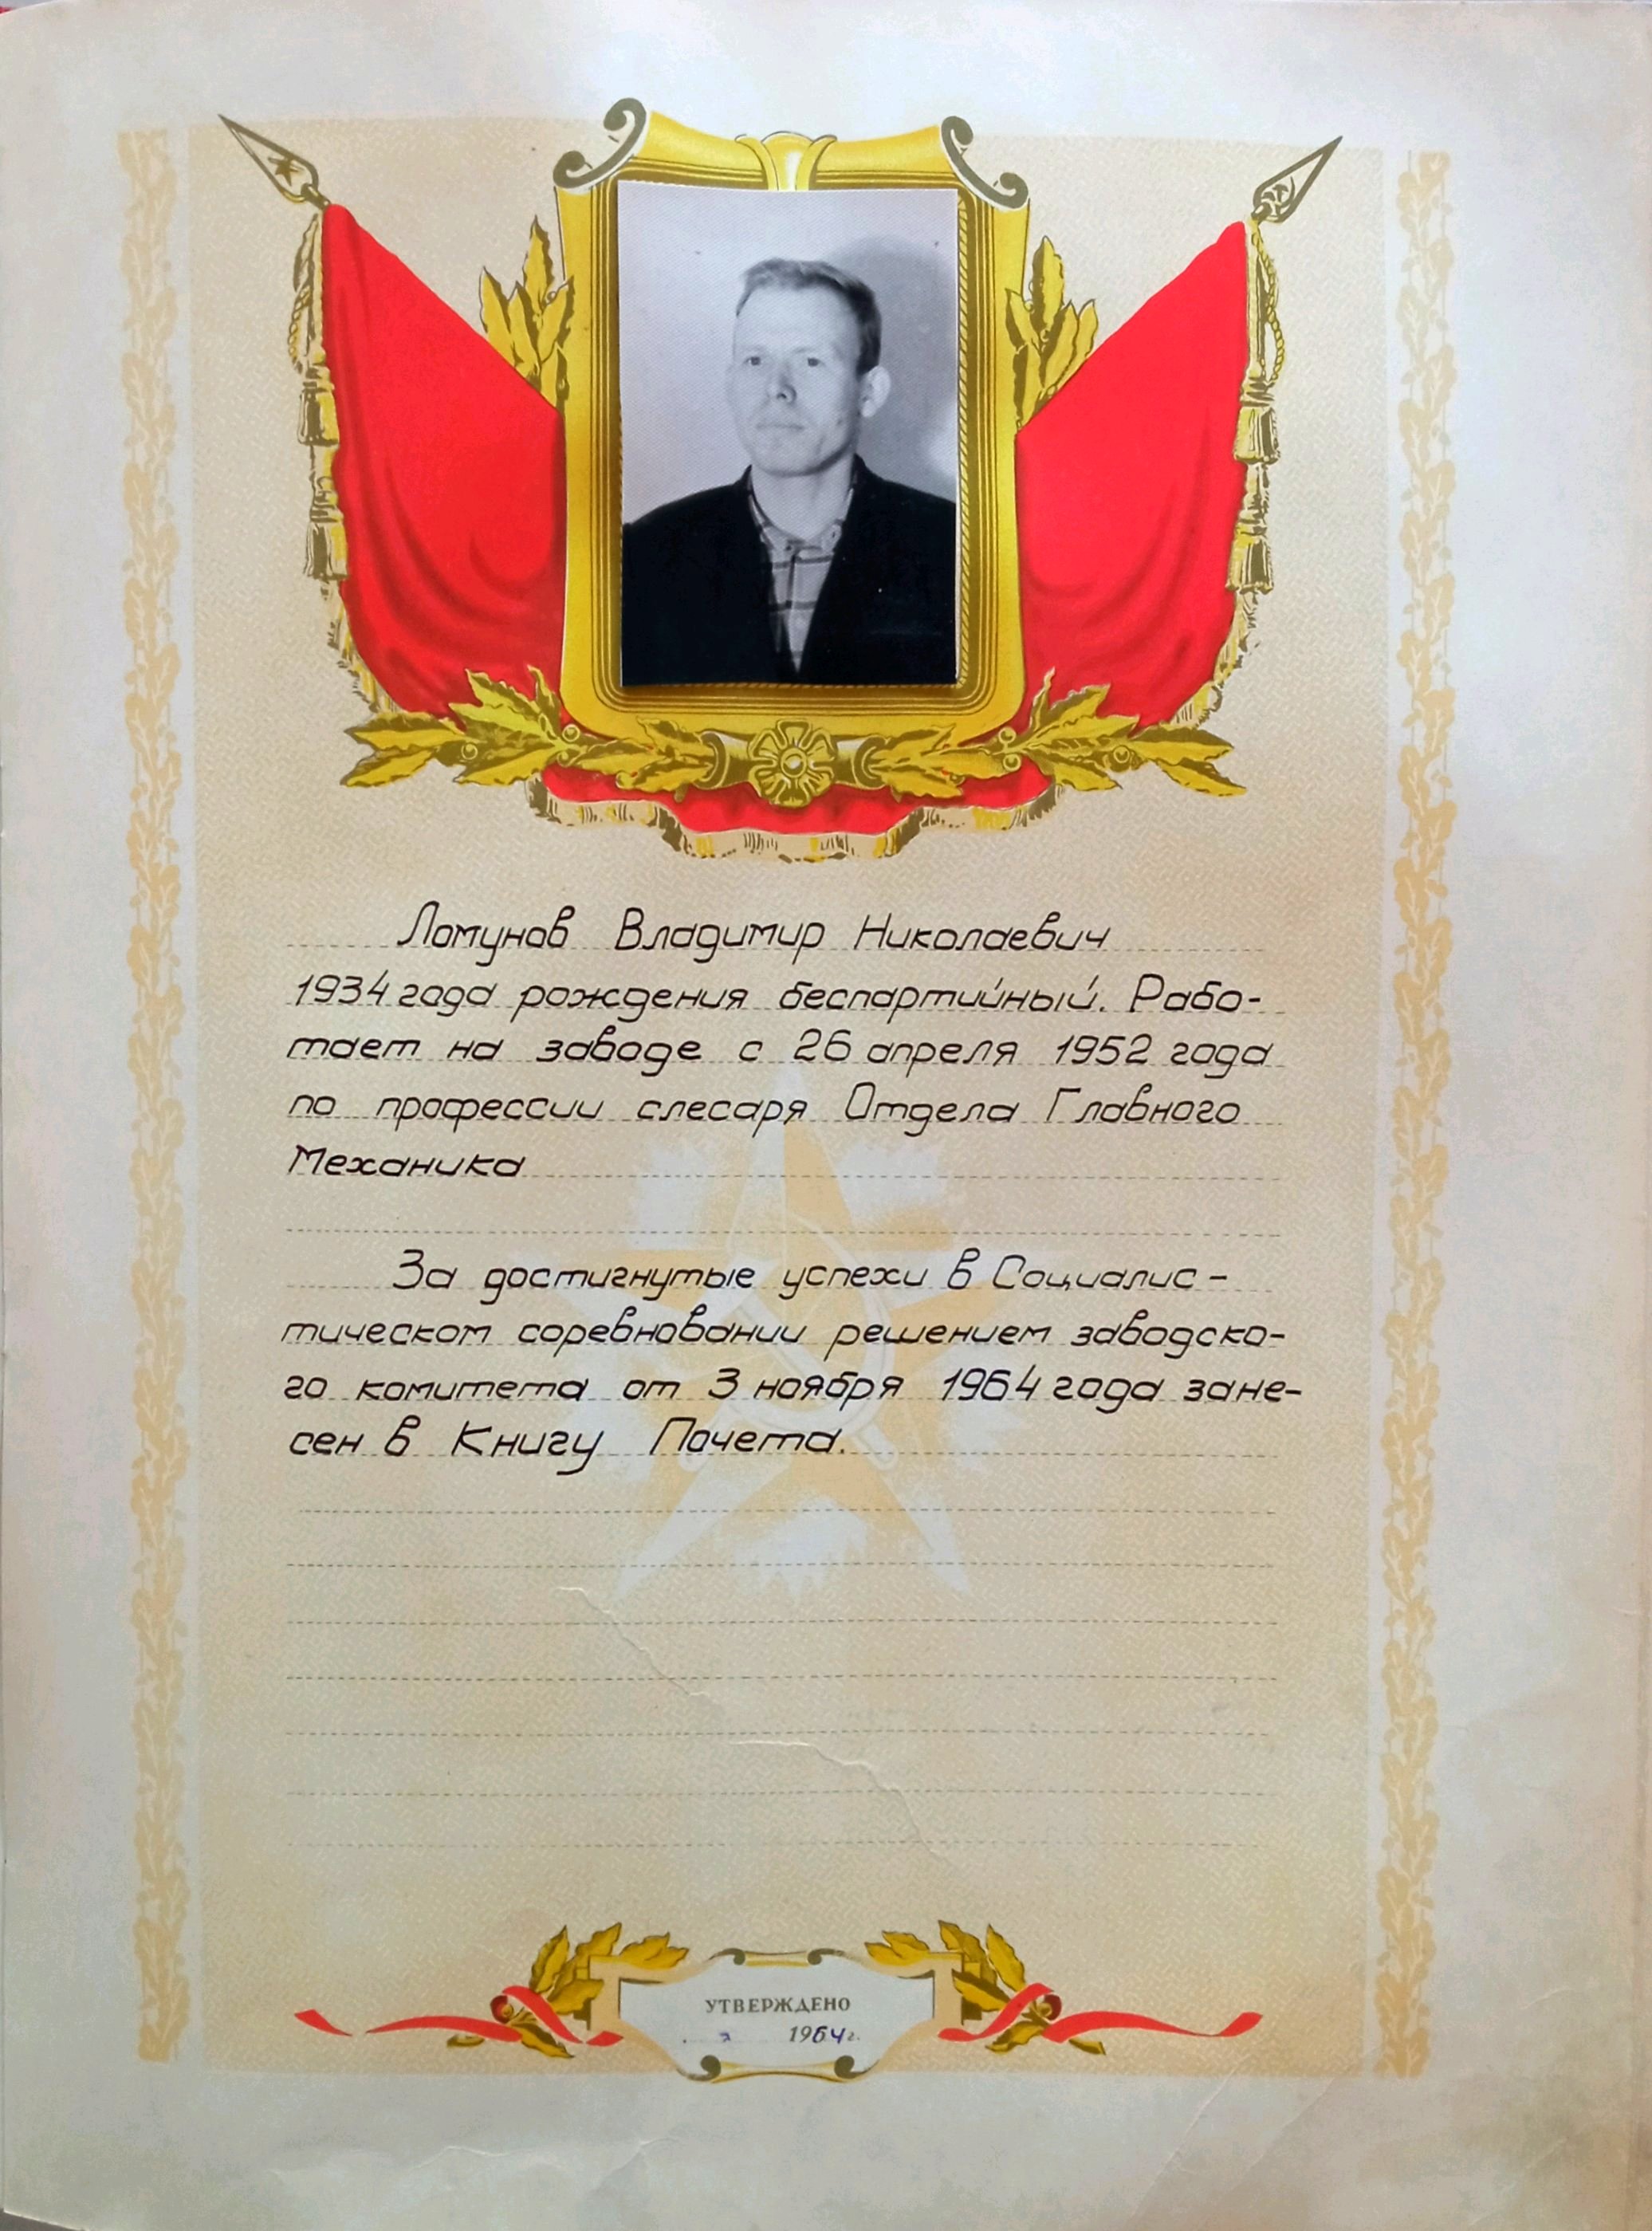 Ломунов Владимир Николаевич
1934 года рождения беспартийный. Рабо-
тает на заводе с 26 апреля 1952 года
по профессии слесаря Отдела Главного
Механика
За достигнутые успехи в Социалис-
тическом соревновании решением заводско-
го комитета от 3 ноября 1964 года зане-
сен в Книгу Почета.
УТВЕРЖДЕНО
1964 г.